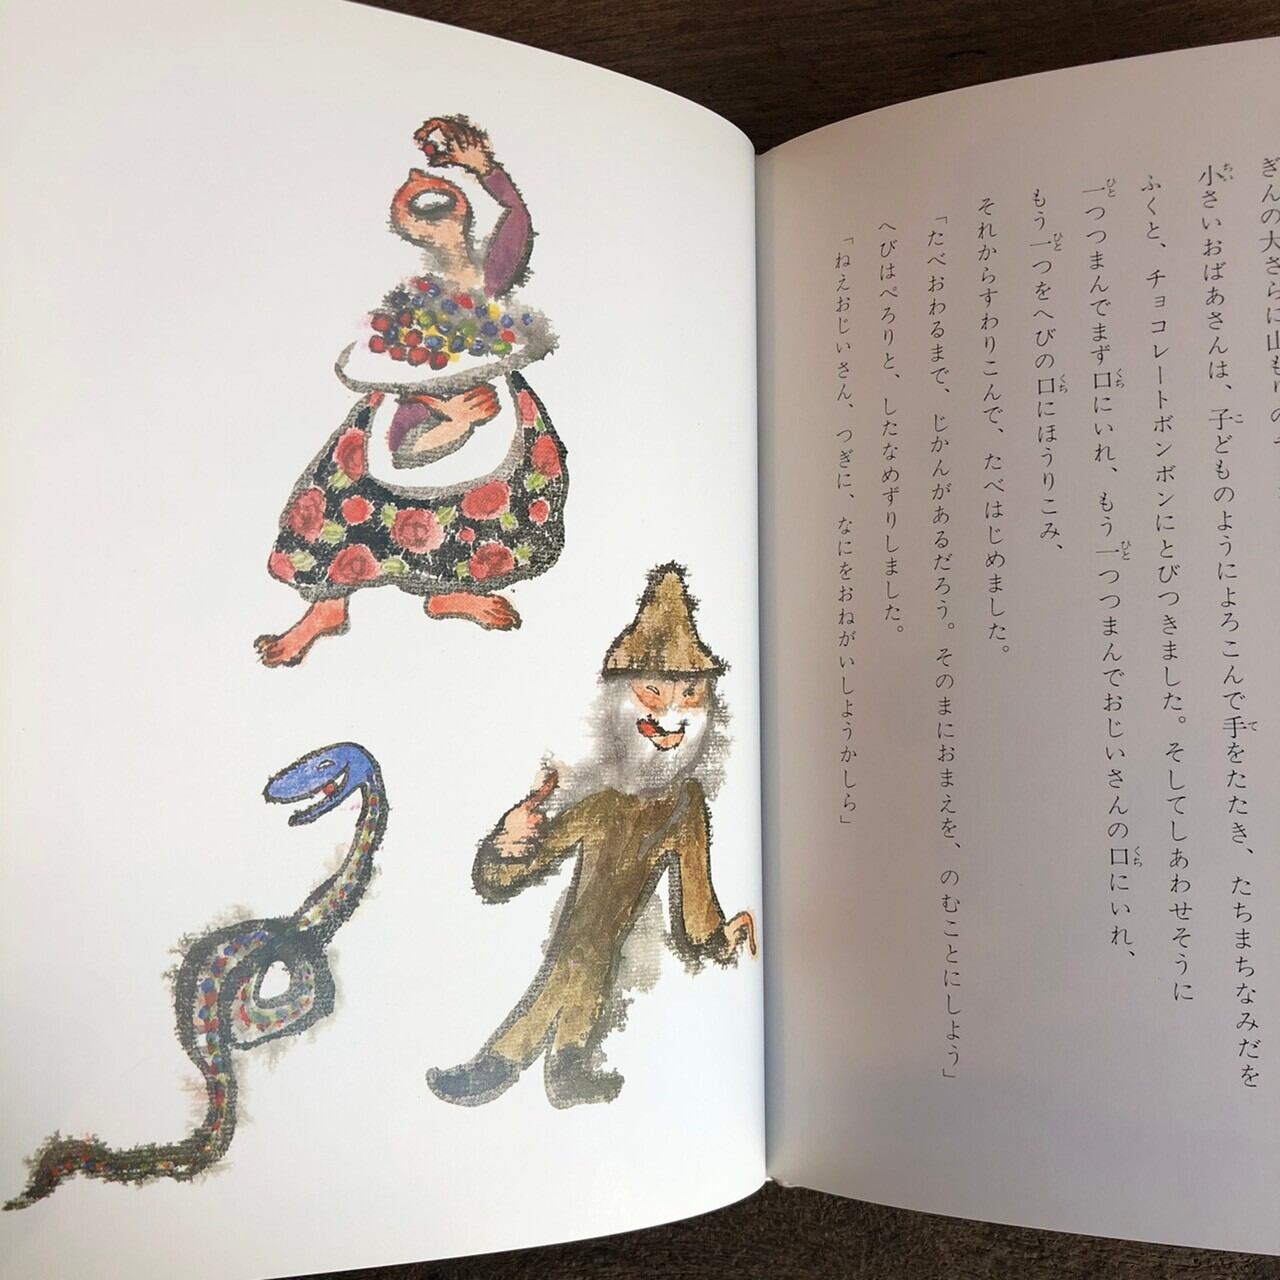 ぎんの大さらに山もりの
小さいおばあさんは、子どものようによろこんで手をたたき、たちまちなみだを
ふくと、チョコレートボンボンにとびつきました。そしてしあわせそうに
一つつまんでまず口にいれ、もう一つつまんでおじいさんの口にいれ、
もう一つをへびの口にほうりこみ、
それからすわりこんで、たべはじめました。
「たべおわるまで、じかんがあるだろう。そのまにおまえを、のむことにしよう」
へびはぺろりと、したなめずりしました。
「ねえおじいさん、つぎに、なにをおねがいしようかしら」